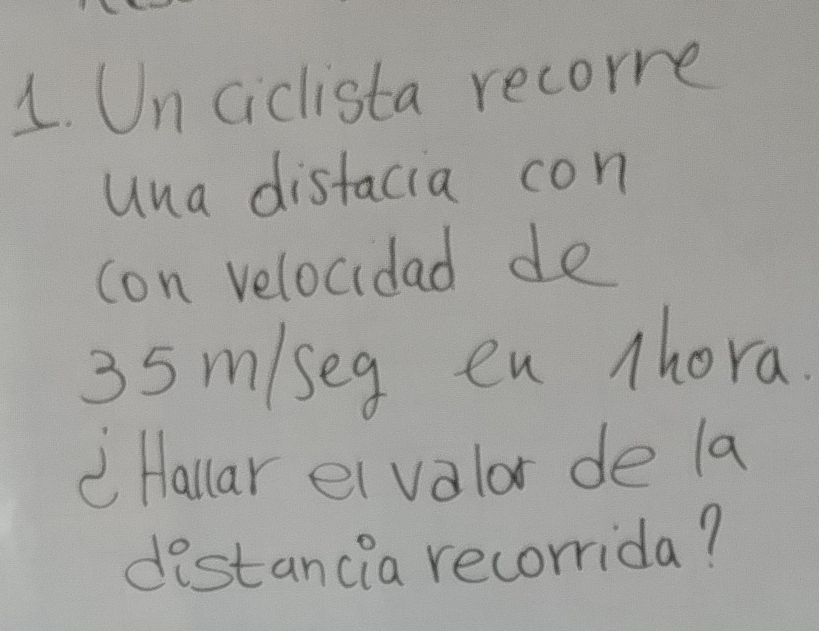 1. Un ciclista recorre
una distacia con
con velocidad de
35 m/seg en 1hora.
¿Hallar el valor de la
distancia recorrida?